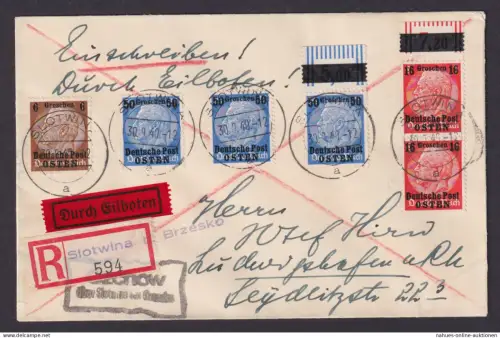 Einschreiben!
Durch Eilboten!
7,20
5,00
6
Groschen
Deutsche Post
OSTEN
50 Groschen 50
Deutsche Post
OSTEN
50 Groschen 50
Deutsche Post
OSTEN
50 Groschen 50
Deutsche Post
OSTEN
16 16
Groschen
Deutsche Post
OSTEN
16 16
Groschen
Deutsche Post
OSTEN
SLOTWINA
a
a
a
a
Durch Eilboten
R
Slotwina b. Brzesko
594
Herrn
Josef Hirn
Ludwigshafen a Rh
Seydlitzstr 22